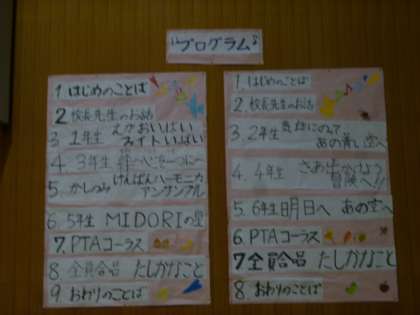 プログラム
1 はじめのことば
2 校長先生のお話
3 1年生 えがおいっぱい
ファイトいっぱい
4. 3年生 絆〜心を一つに〜
5. かしつみ けんばんハーモニカ
アンサンブル
6. 5年生 MIDORIの星
7. PTAコーラス
8 全員合唱 たしかなこと
9 おわりのことば
1. はじめのことば
2. 校長先生のお話
3. 2年生 気球にのって
あの青い空へ
4. 4年生 さあ出かけよう
冒険へ!!
5. 6年生 明日へ あの空へ
6. PTAコーラス
7 全員合唱 たしかなこと
8. おわりのことば